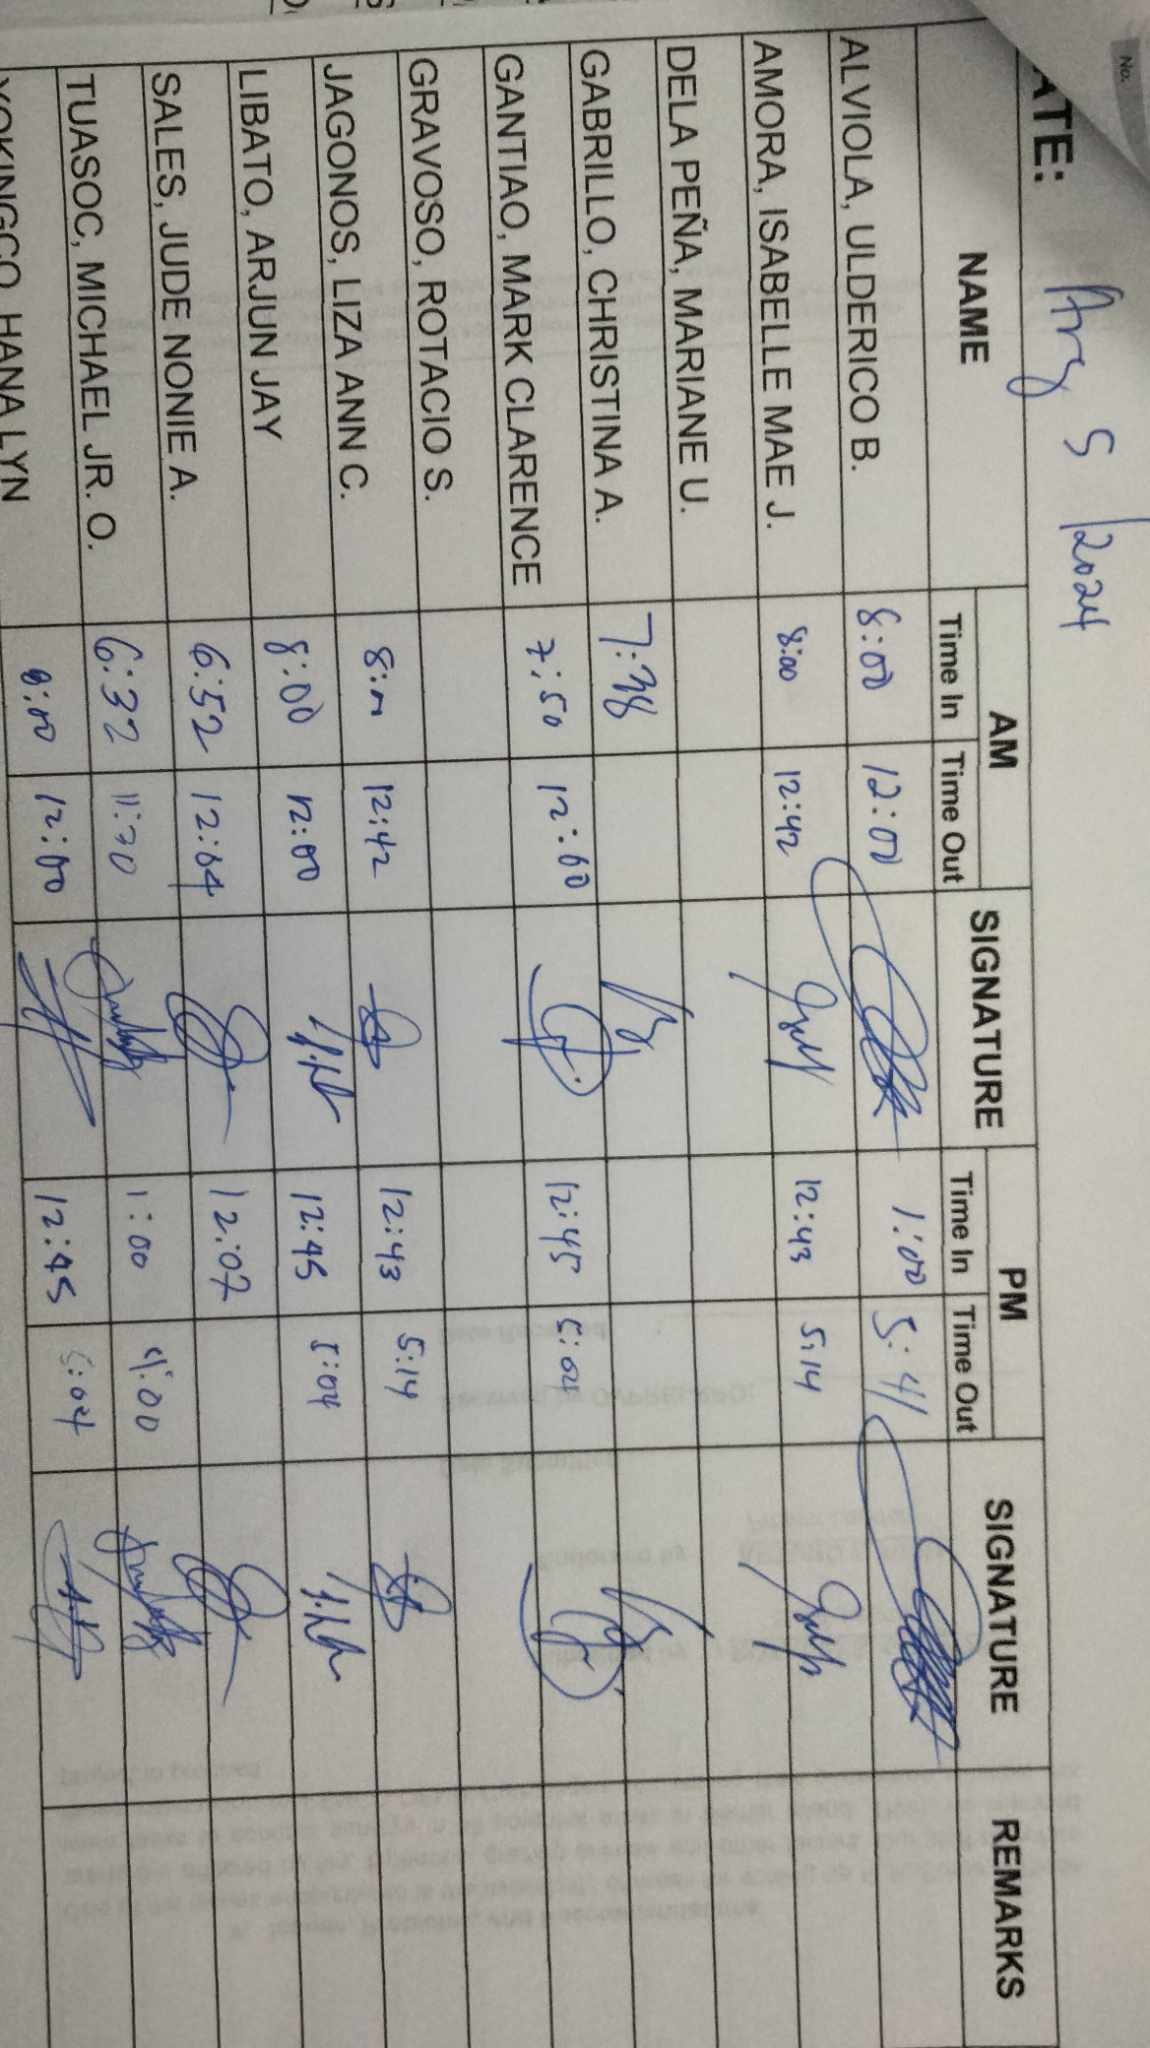 No.
ATE: Aug 5 2024
NAME AM SIGNATURE PM SIGNATURE REMARKS
Time In Time Out Time In Time Out
ALVIOLA, ULDERICO B. 8:00 12:00 1:00 5:41
AMORA, ISABELLE MAE J. 8:00 12:42 12:43 5:14
DELA PEÑA, MARIANE U.
GABRILLO, CHRISTINA A. 7:38
GANTIAO, MARK CLARENCE 7:50 12:00 12:45 5:04
GRAVOSO, ROTACIO S.
JAGONOS, LIZA ANN C. 8:00 12:42 12:43 5:14
LIBATO, ARJUN JAY 8:00 12:00 12:45 5:04
SALES, JUDE NONIE A. 6:52 12:04 12:07
TUASOC, MICHAEL JR. O. 6:32 11:30 1:00 4:00
YOKINGCO, HANA LYN 8:00 12:00 12:45 5:04